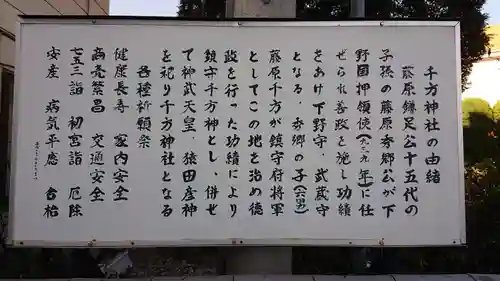 千方神社の由緒
藤原鎌足公十五代の
子孫の藤原秀郷公が下
野国押領使(九二九年)に任
ぜられ善政を施し功績
をあげ下野守・武蔵守
となる・秀郷の子(六男)
藤原千方が鎮守府将軍
としてこの地を治め徳
政を行った功績により
鎮守千方神とし、併せ
て神武天皇、猿田彦神
を祀り千方神社となる
各種祈願祭
健康長寿 家内安全
商売繁昌 交通安全
七五三詣 初宮詣 厄除
安産 病気平癒 合格